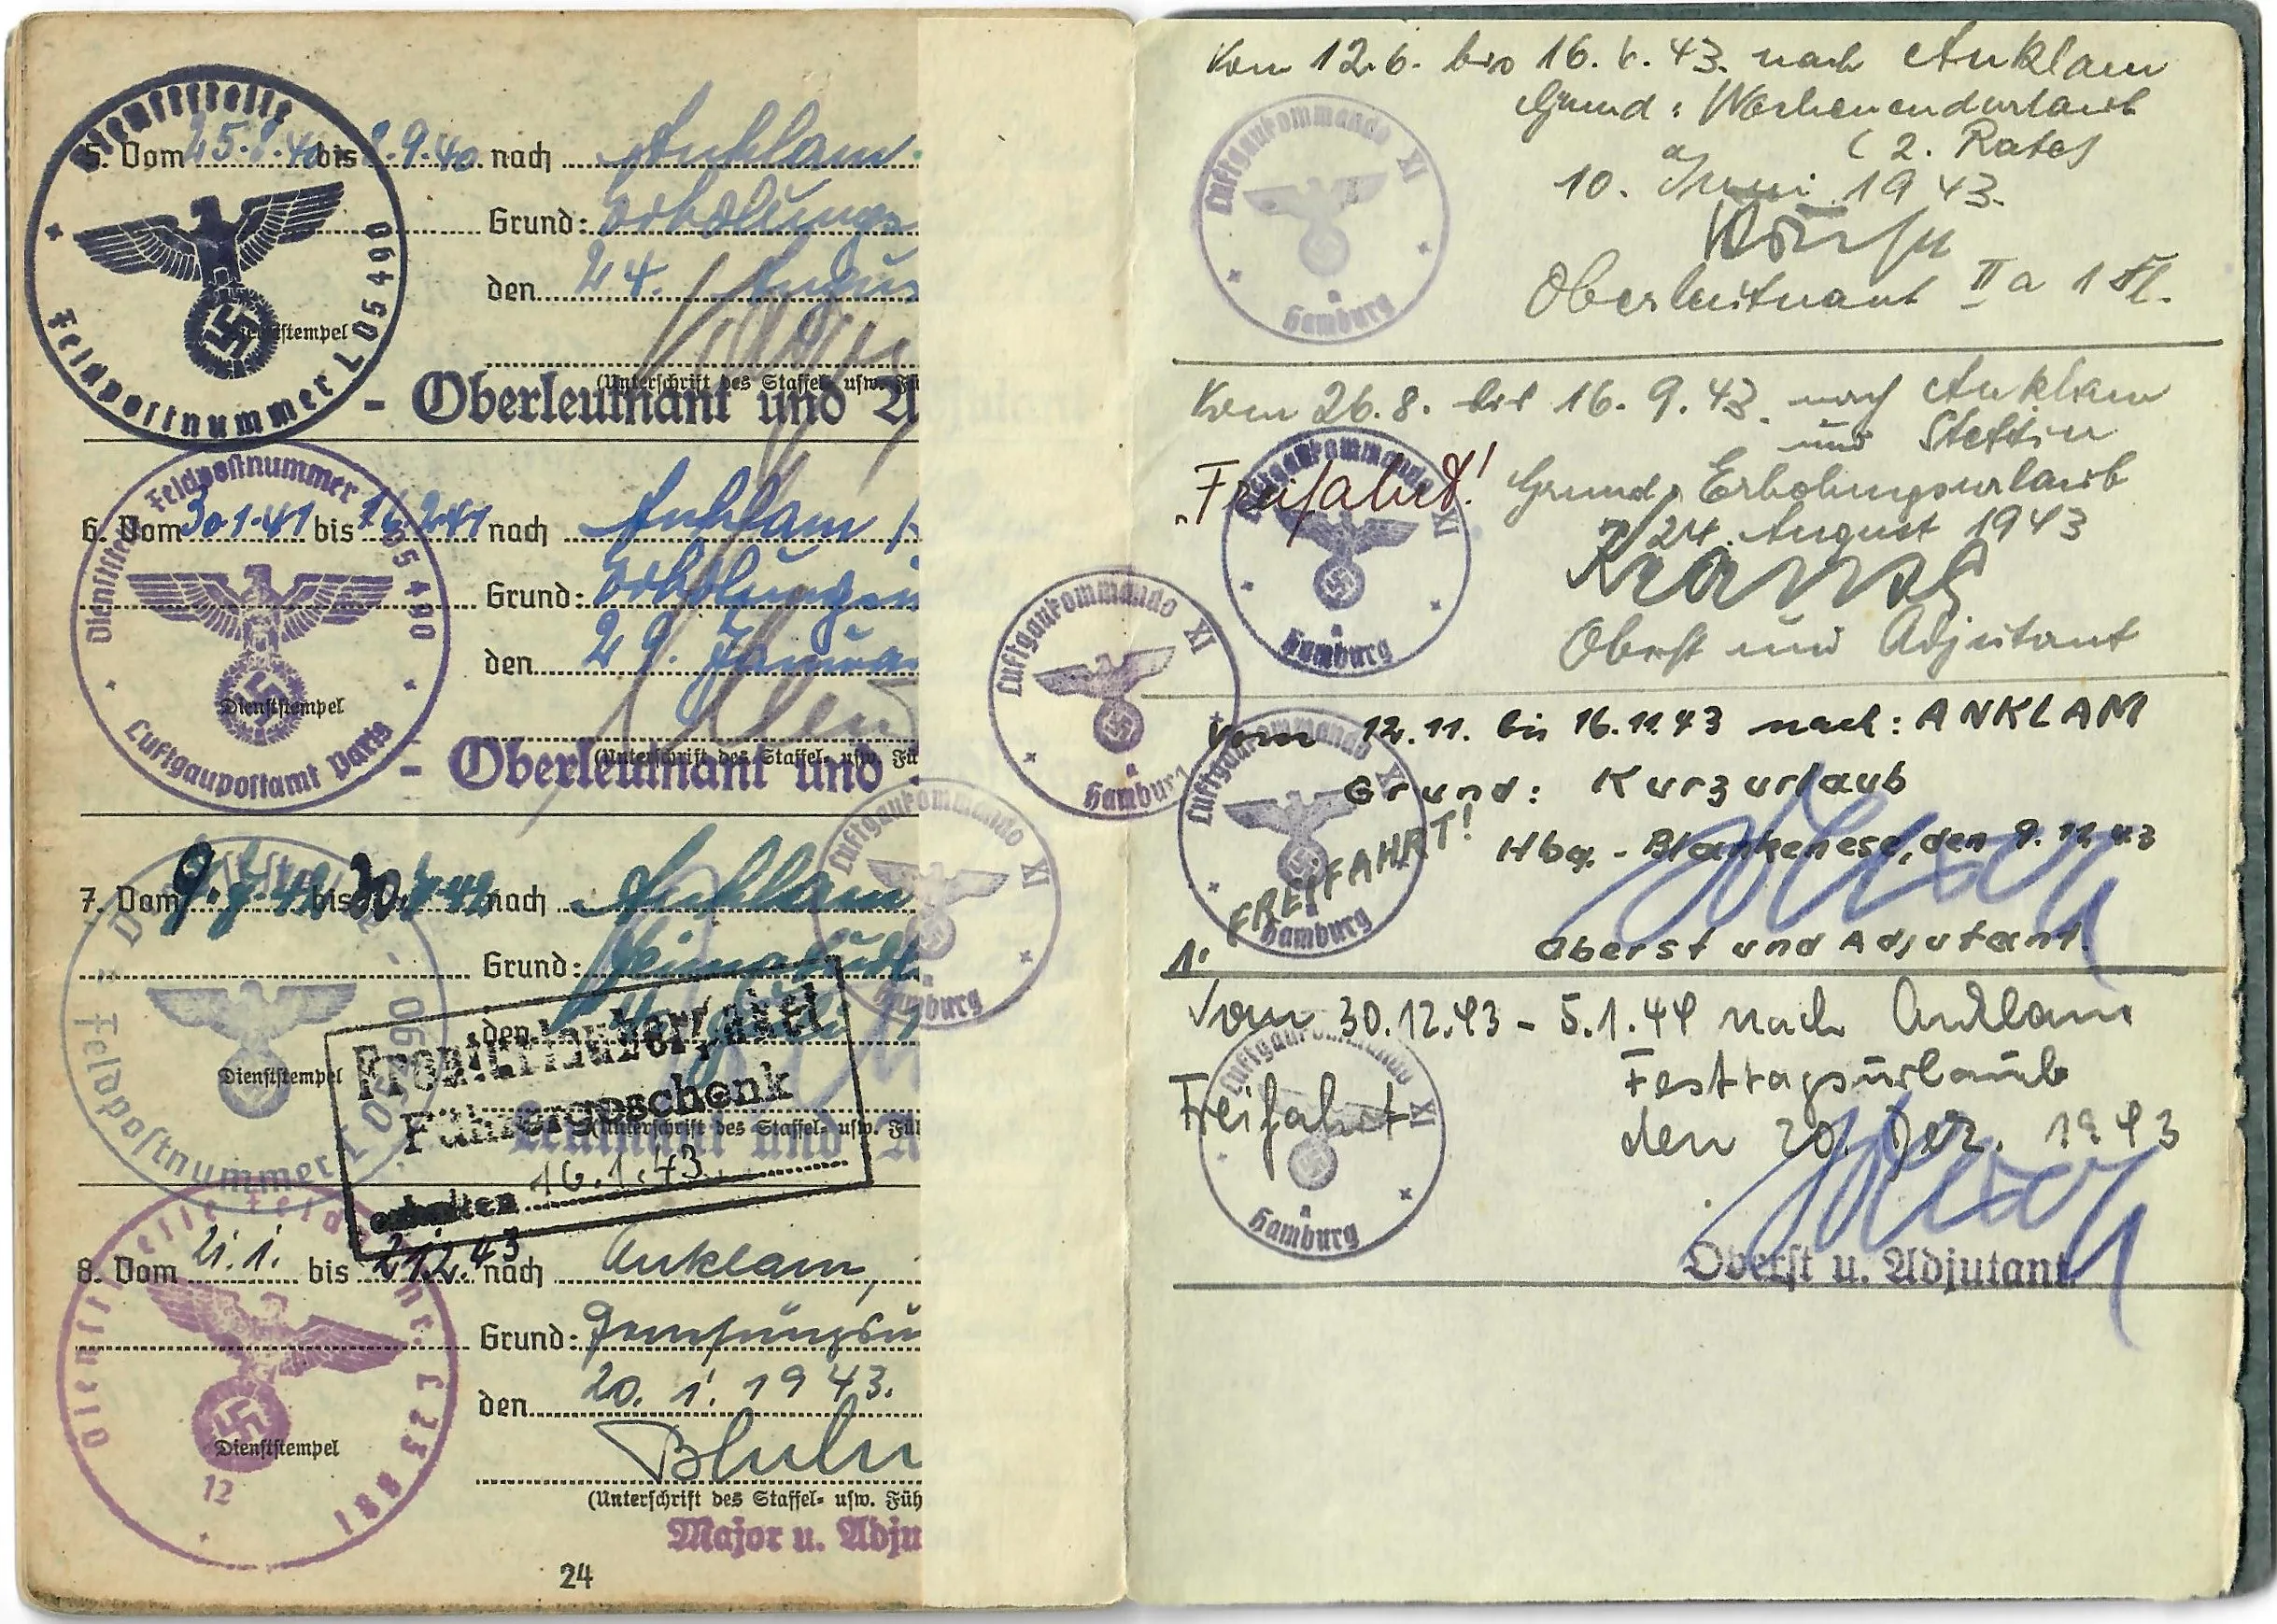 Dienststelle
Feldpostnummer L 05490
5. Vom 25.8.40 bis 9.40 nach Anklam
Grund: Erholungs
den 24. Augus
Dienststempel
(Unterschrift des Staffel- usw. Fü
- Oberleutnant und A
Dienststelle Feldpostnummer L 05490
Luftgaupostamt Paris
6. Vom 30.1.41 bis 2.41 nach Anklam
Grund: Erholungsu
den 29. Janua
Dienststempel
(Unterschrift des Staffel- usw. Fü
- Oberleutnant und
7. Vom bis 42 nach Anklam
Grund:
den
Dienststempel
Feldpostnummer L
(Unterschrift des Staffel- usw. Fü
Leutnant und A
Fronturlauberpaket
Führergeschenk
erhalten 16.1.43.
8. Vom 21.1. bis 21.2.43 nach Anklam,
Grund: Genesungsu
den 20. 1. 1943.
Dienststempel
12
(Unterschrift des Staffel- usw. Füh
Major u. Adju
24
Luftgaukommando XI
Hamburg
Luftgaukommando XI
Hamburg
Vom 12.6. bis 16.6.43. nach Anklam
Grund: Wochenendurlaub
(2. Rate)
10. Juni 1943.
Oberleutnant IIa
Luftgaukommando XI
Hamburg
Vom 26.8. bis 16.9.43. nach Anklam
und Stettin
„Freifahrt!
Grund: Erholungsurlaub
24. August 1943
Oberst und Adjutant
Luftgaukommando XI
Hamburg
Vom 12.11. bis 16.11.43 nach: ANKLAM
Grund: Kurzurlaub
FREIFAHRT!
Hbg.-Blankenese, den 9.11.43
Oberst und Adjutant.
Luftgaukommando XI
Hamburg
Vom 30.12.43 - 5.1.44 nach Anklam
Festtagsurlaub
Freifahrt
den 20. Dez. 1943
Oberst u. Adjutant
Luftgaukommando XI
Hamburg